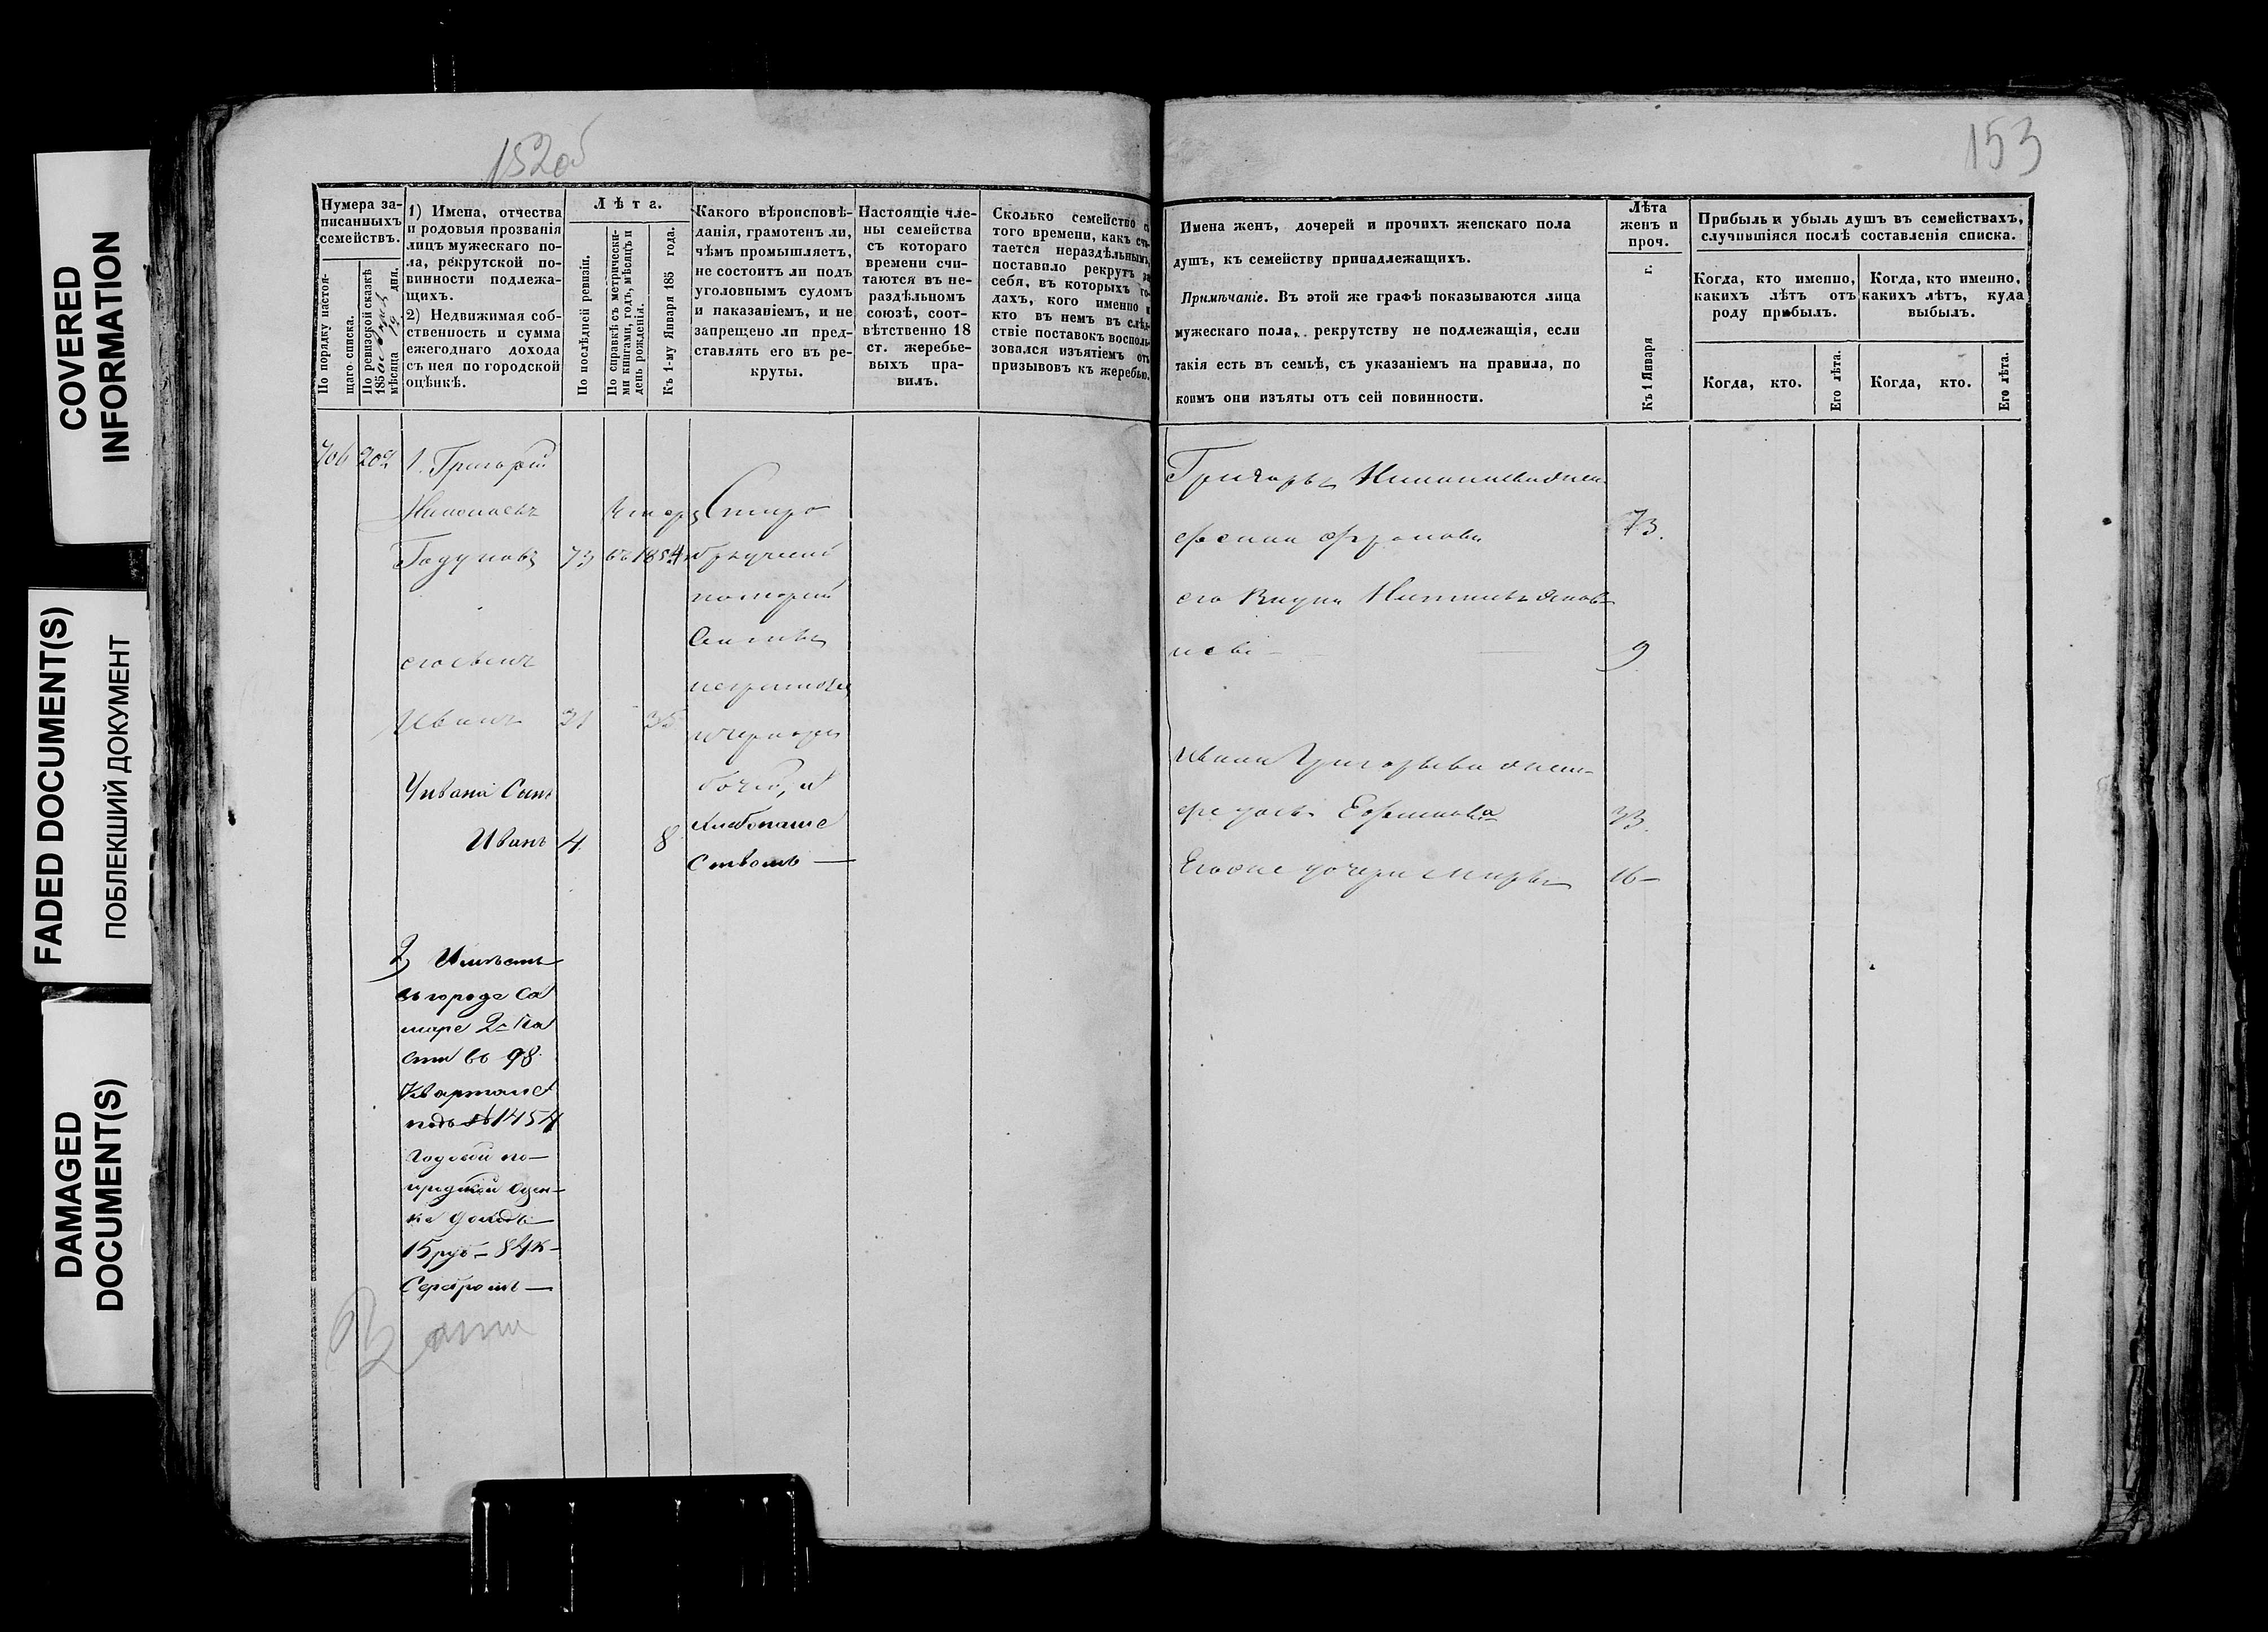 COVERED
INFORMATION
FADED DOCUMENT(S)
ПОБЛЕКШИЙ ДОКУМЕНТ
DAMAGED
DOCUMENT(S)
152об
Нумера за-
писанныхъ
семействъ.
По порядку настоя-
щаго списка.
По ревизской сказкѣ
185
мѣсяца 19 дня.
1) Имена, отчества
и родовыя прозванія
лицъ мужескаго по-
ла, рекрутской по-
винности подлежа-
щихъ.
2) Недвижимая соб-
ственность и сумма
ежегоднаго дохода
съ нея по городской
оцѣнкѣ.
Лѣта.
По послѣдней ревизіи.
По справкѣ съ метрически-
ми книгами, годъ, мѣсяцъ и
день рожденія.
Къ 1-му Января 185 года.
Какого вѣроисповѣ-
данія, грамотенъ ли,
чѣмъ промышляетъ,
не состоитъ ли подъ
уголовнымъ судомъ
и наказаніемъ, и не
запрещено ли пред-
ставлять его въ ре-
круты.
Настоящіе чле-
ны семейства
съ котораго
времени счи-
таются въ не-
раздѣльномъ
союзѣ, соот-
вѣтственно 18
ст. жеребье-
выхъ пра-
вилъ.
Сколько семейство съ
того времени, какъ счи-
тается нераздѣльнымъ,
поставило рекрутъ за
себя, въ которыхъ го-
дахъ, кого именно и
кто въ немъ въ слѣд-
ствіе поставокъ восполь-
зовался изъятіемъ отъ
призывовъ къ жеребью.
706 202 1. Григорій
Николаевъ умеръ
Годуновъ 73 въ 1854
его сынъ
Иванъ 31 35
У Ивана Сынъ
Иванъ 4 8
Старо
обрядческой
поморской
Секты
неграмотны
Хлебопаше
ствомъ —
2) Имѣетъ
въ городе Са
маре 2й Ча
сти въ 98
Квартале
подъ № 1454
Годовой по
городской Оцен-
ке доходъ
15 руб — 84 к —
Серебромъ —
153
Имена женъ, дочерей и прочихъ женскаго пола
душъ, къ семейству принадлежащихъ.
Примѣчаніе. Въ этой же графѣ показываются лица
мужескаго пола, рекрутству не подлежащія, если
такія есть въ семьѣ, съ указаніемъ на правила, по
коимъ они изъяты отъ сей повинности.
Лѣта
женъ и
проч.
Къ 1 Января г.
Прибыль и убыль душъ въ семействахъ,
случившіяся послѣ составленія списка.
Когда, кто именно,
какихъ лѣтъ отъ
роду прибылъ.
Когда, кто именно,
какихъ лѣтъ, куда
выбылъ.
Когда, кто.
Его лѣта.
Когда, кто.
Его лѣта.
Григорья Николаева жена
73.
его Внука
9
Ивана Григорьева жена
Ефимова 33.
Его же дочери Марья 16 —